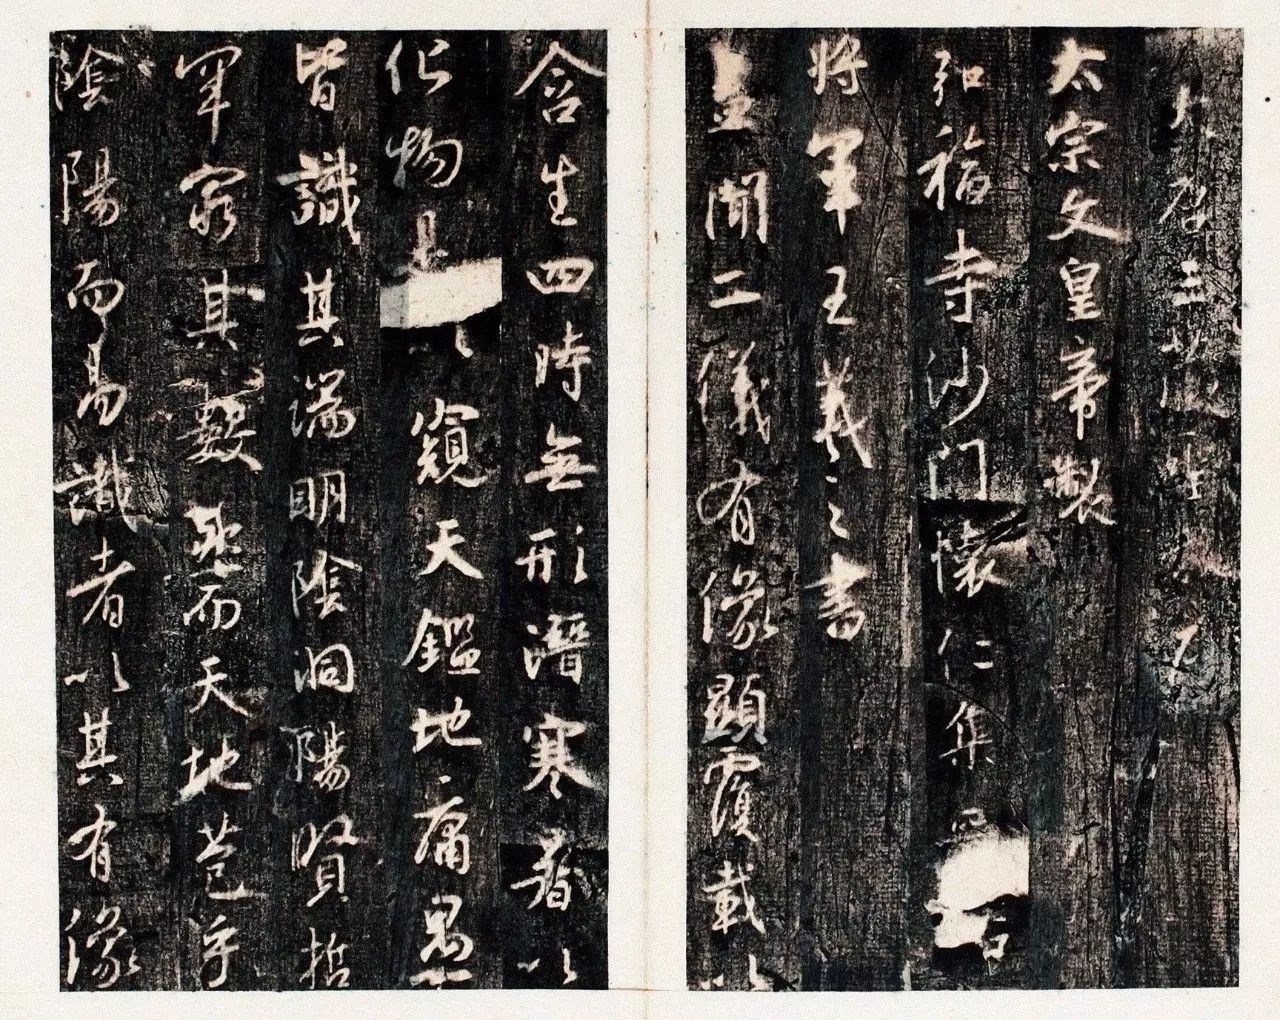 大唐三藏聖教序
太宗文皇帝製
弘福寺沙門懷仁集晉
將軍王羲之書
蓋聞二儀有像顯覆載以
含生四時無形潛寒暑以
化物是以窺天鑑地庸愚
皆識其端明陰洞陽賢哲
罕窮其數然而天地苞乎
陰陽而易識者以其有像